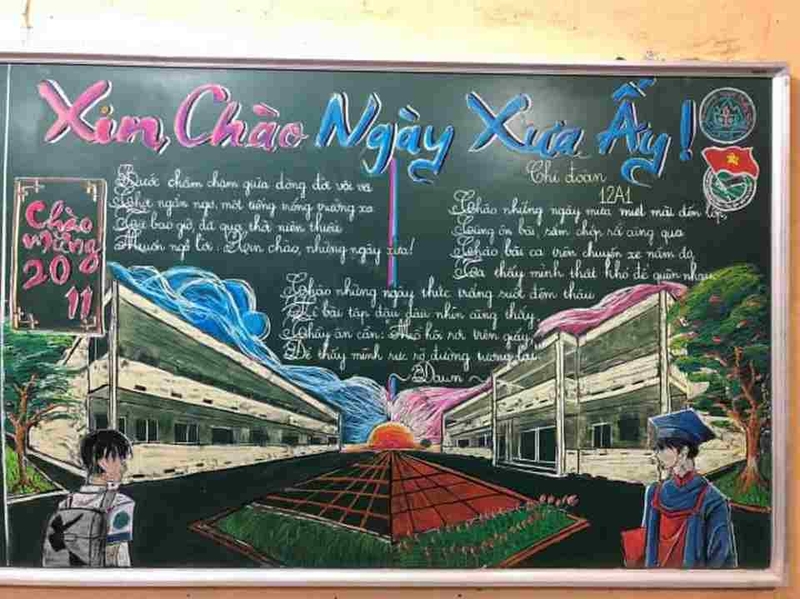 Xin Chào Ngày Xưa Ấy!
Chi đoàn
12A1
Chào
mừng
20
11
Bước chầm chậm giữa dòng đời vội vã
Chợt ngẩn ngơ, một tiếng trống trường xa
Tự bao giờ, đã qua, thời niên thiếu
Muốn ngỏ lời: Xin chào, những ngày xưa!
Chào những ngày mưa miệt mài đến lớp,
Cùng ôn bài, sấm chớp rồi cũng qua
Chào bài ca trên chuyến xe năm đó,
Ta thấy mình thật khó để quên nhau
Chào những ngày thức trắng suốt đêm thâu
Vì bài tập đâu đâu nhìn cũng thấy
Thầy ân cần: "Mồ hôi rơi trên giấy
Để thấy mình rực rỡ đường tương lai
~ Dawn ~